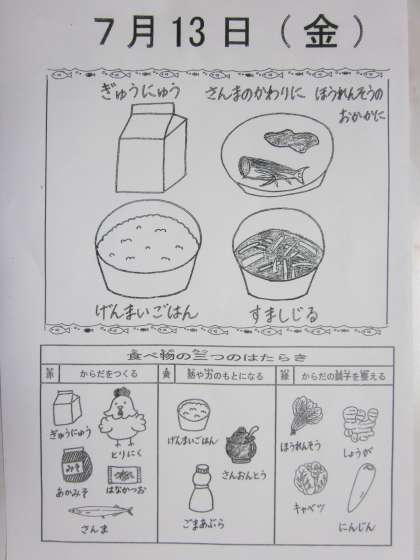 7月13日(金)
ぎゅうにゅう
さんまのかわりに
ほうれんそうの
おかかに
げんまいごはん
すましじる
食べ物の三つのはたらき
赤 からだをつくる
黄 熱や力のもとになる
緑 からだの調子を整える
ぎゅうにゅう
とりにく
みそ
あかみそ
はなかつお
さんま
げんまいごはん
さんおんとう
ごまあぶら
ほうれんそう
しょうが
キャベツ
にんじん